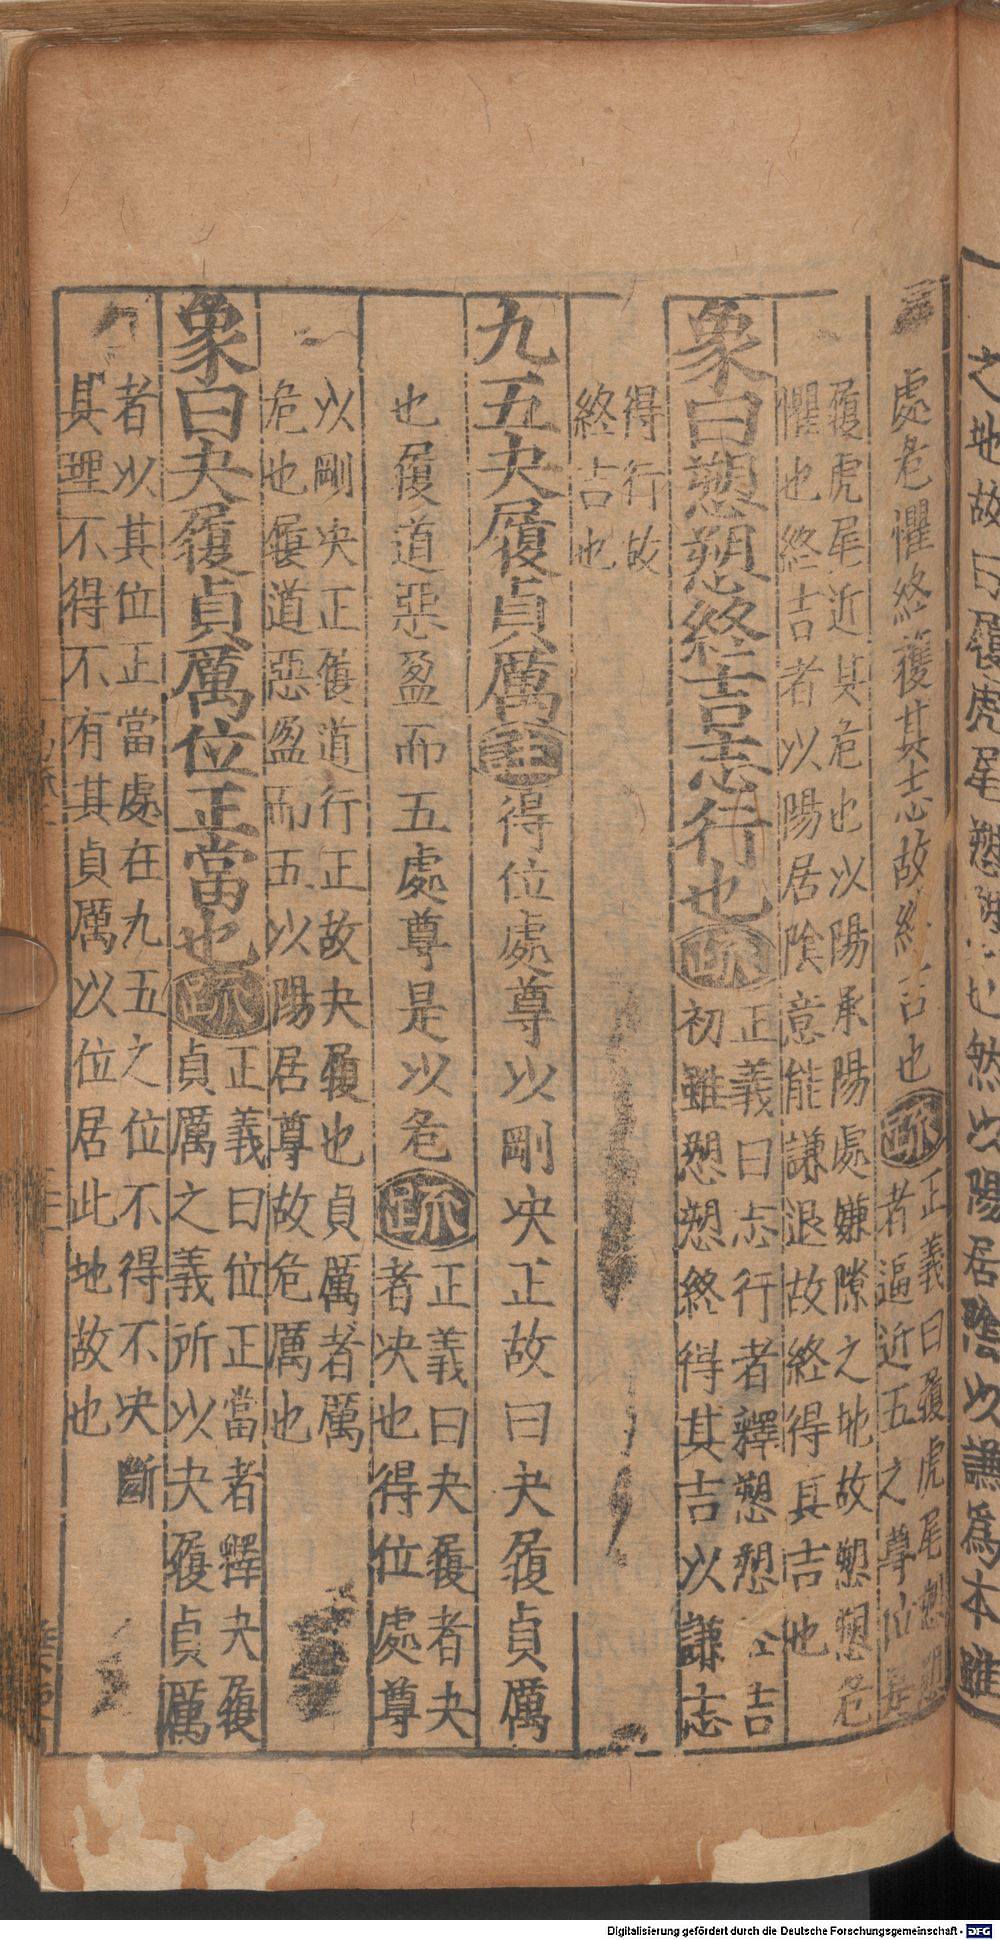 之地故曰履虎尾愬愬也然以陽居陰以謙為本雖
處危懼終獲其志故終吉也疏
正義曰履虎尾愬愬
者逼近五之尊位
履虎尾近其危也以陽承陽處嫌隙之地故愬愬危
懼也終吉者以陽居陰意能謙退故終得其吉也
象曰愬愬終吉志行也疏
正義曰志行者釋愬愬終吉
初雖愬愬終得其吉以謙志
得行故
終吉也
九五夬履貞厲註得位處尊以剛决正故曰夬履貞厲
也履道惡盈而五處尊是以危疏
正義曰夬履者夬
者决也得位處尊
以剛决正履道行正故夬履也貞厲者厲
危也履道惡盈而五以陽居尊故危厲也
象曰夬履貞厲位正當也疏
正義曰位正當者釋夬履
貞厲之義所以夬履貞厲
者以其位正當處在九五之位不得不决斷
其理不得不有其貞厲以位居此地故也
Digitalisierung gefördert durch die Deutsche Forschungsgemeinschaft - DFG